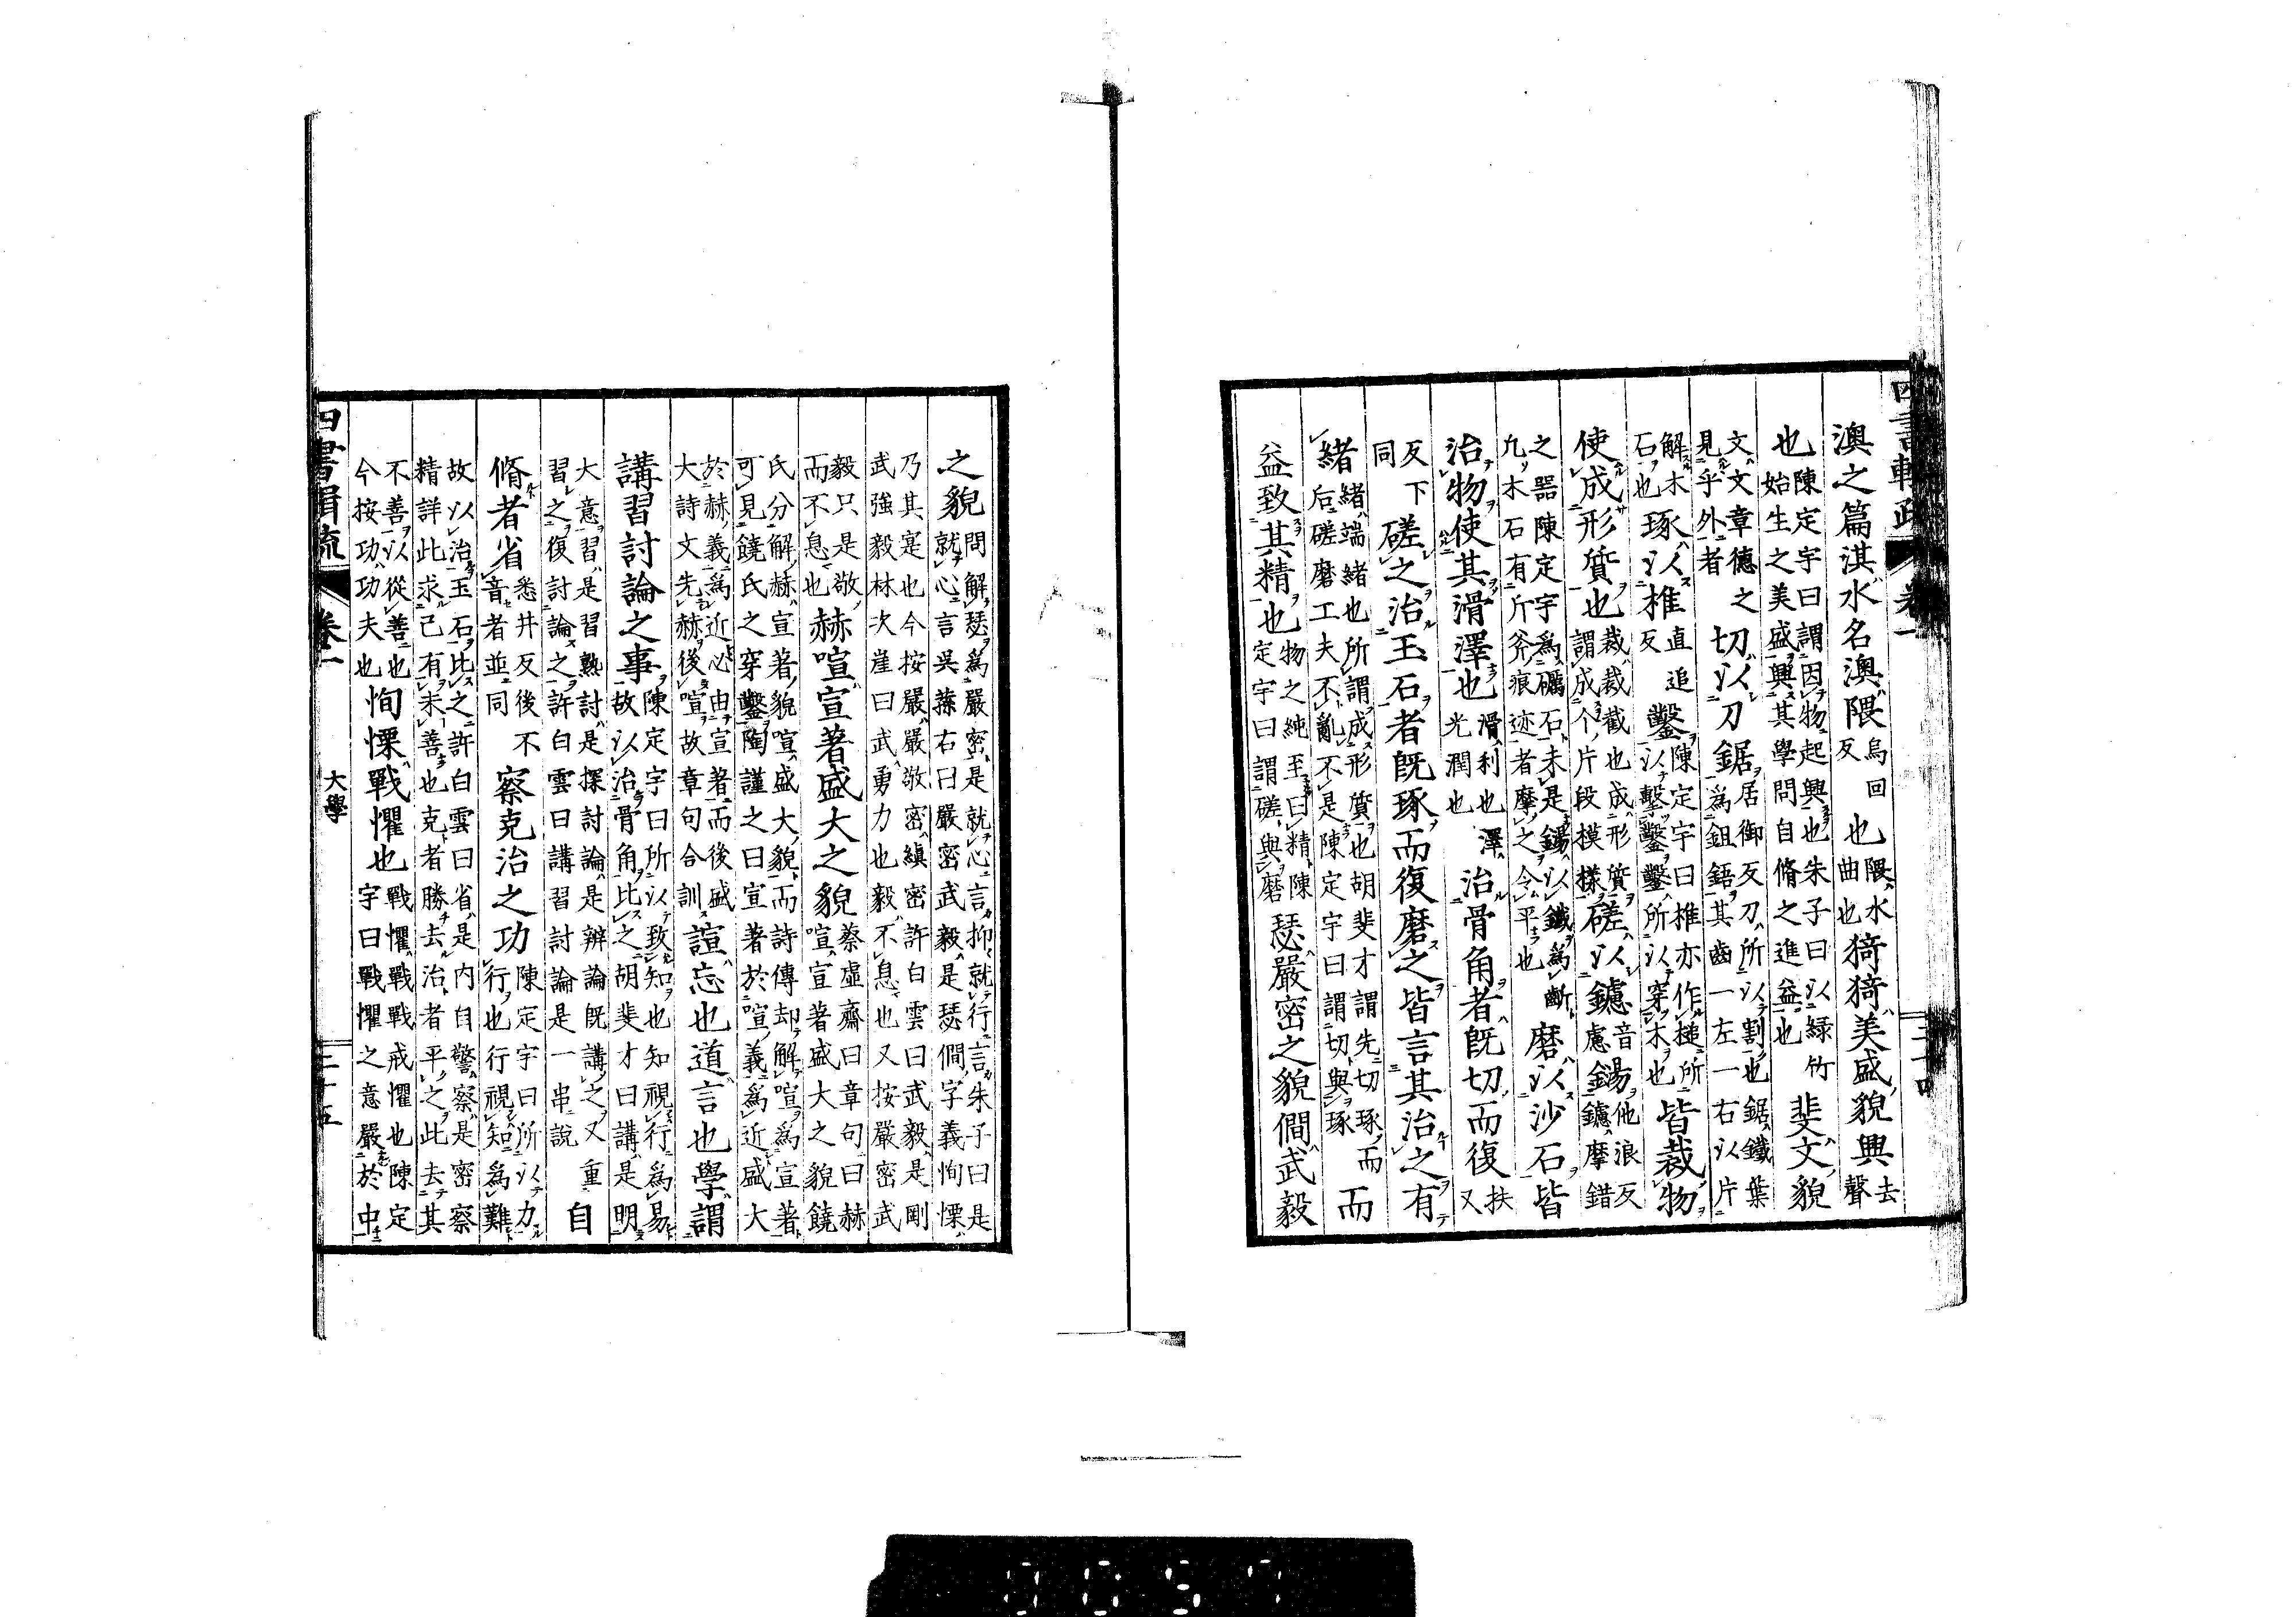 四書輯疏 卷一 三十四
澳之篇淇水名澳隈烏回反也隈水曲也猗猗美盛貌興去聲
也陳定宇曰謂因物起興也朱子曰以綠竹始生之美盛興其學問自脩之進益也斐文貌
文文章德之見乎外者切以刀鋸居御反刀所以割也鋸鐵葉爲鉏鋙其齒一左一右以片
解木石也琢以椎直追反鑿陳定宇曰椎亦作槌所以擊鑿鑿所以穿木也皆裁物
使成形質也裁裁截也成形質謂成个片段模樣磋以鑢音慮鍚他浪反鑢摩錯
之器陳定宇爲礪石未是鍚以鐵爲斷九木石有斤斧痕迹者摩之令平也磨以沙石皆
治物使其滑澤也滑利也澤光潤也治骨角者既切而復扶又
反下同磋之治玉石者既琢而復磨之皆言其治之有
緒緒端緒也所謂成形質也胡斐才謂先切琢而后磋磨工夫不亂不是陳定宇曰謂切與琢而
益致其精也物之純至曰精陳定宇曰謂磋與磨瑟嚴密之貌僩武毅
之貌問解瑟爲嚴密是就心言抑就行言朱子曰是就心言吳蓀右曰嚴密武毅是瑟僩字義恂慄
乃其寔也今按嚴嚴敬密縝密許白雲曰武毅是剛武強毅林次崖曰武勇力也毅不息也又按嚴密武
毅只是敬而不息也赫喧宣著盛大之貌蔡虛齋曰章句曰赫喧宣著盛大之貌饒
氏分解赫宣著貌喧盛大貌而詩傳却解喧爲宣著可見饒氏之穿鑿陶謹之曰宣著於喧義爲近盛大
於赫義爲近必由宣著而後盛大詩文先赫後喧故章句合訓諠忘也道言也學謂
講習討論之事陳定宇曰所以致知也知視行爲易故以治骨角比之胡斐才曰講是明
大意習是習熟討是探討論是辨論既講之又重習之復討論之許白雲曰講習討論是一串說自
脩者省悉井反後不音者並同察克治之功陳定宇曰所以力行也行視知爲難
故以治玉石比之許白雲曰省是內自警察是密察精詳此求己有未善也克者勝去治者平之此去其
不善以從善也今按功功夫也恂慄戰懼也戰懼戰戰戒懼也陳定宇曰戰懼之意嚴於中
四書輯疏 卷一 大學 三十五